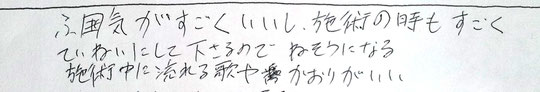 ふ囲気がすごくいいし、施術の時もすごく
ていねいにして下さるので ねそうになる
施術中に流れる歌や かおりがいい